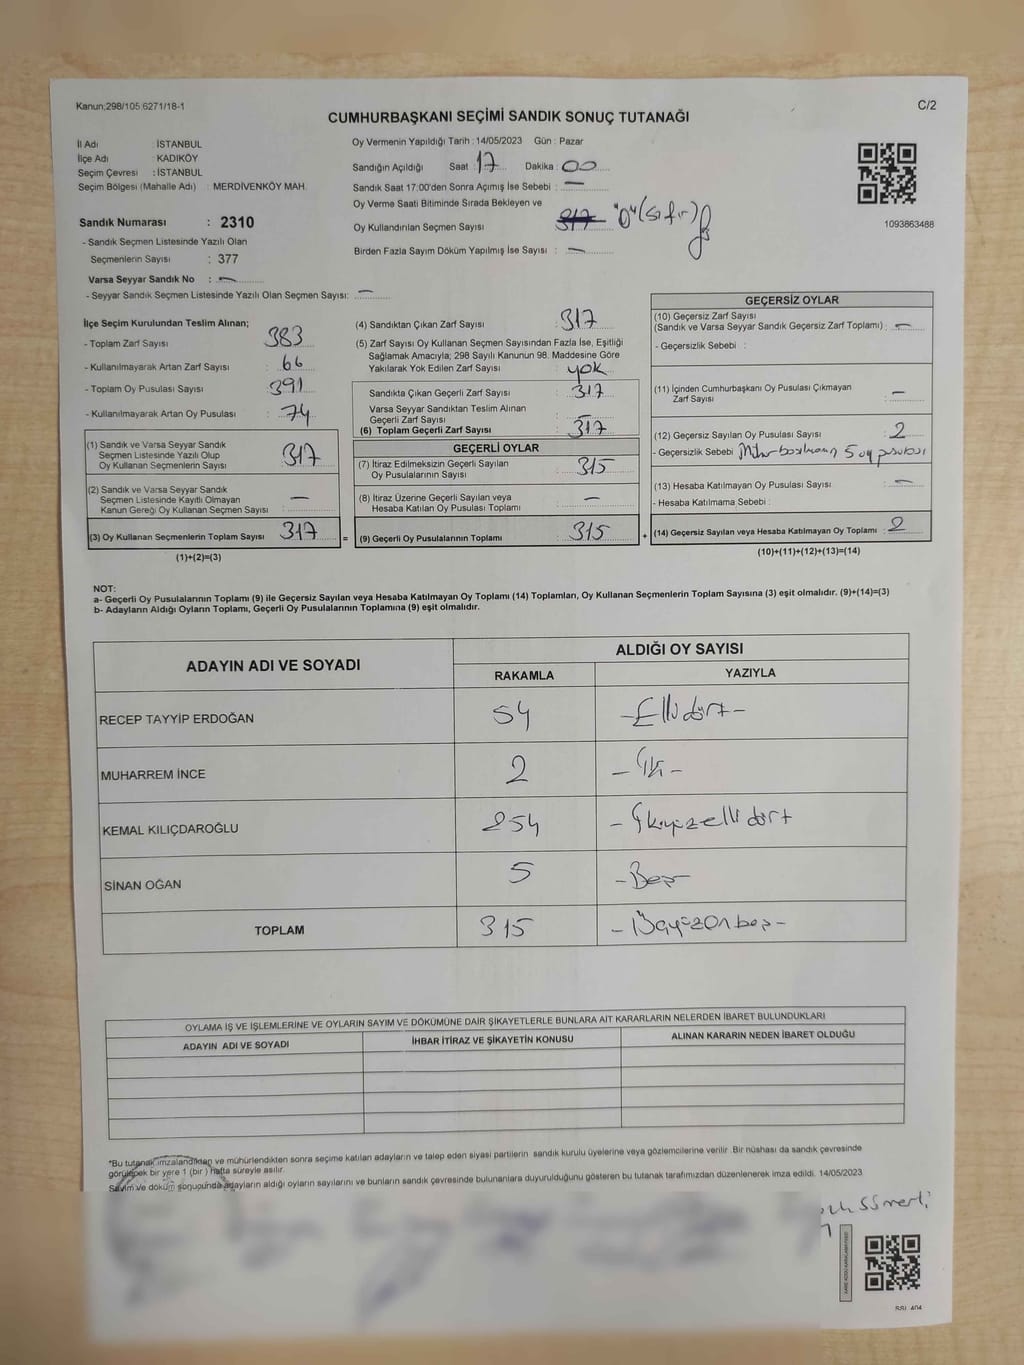 Kanun;298/105 6271/18-1
C/2
CUMHURBAŞKANI SEÇİMİ SANDIK SONUÇ TUTANAĞI
İl Adı : İSTANBUL
İlçe Adı : KADIKÖY
Seçim Çevresi : İSTANBUL
Seçim Bölgesi (Mahalle Adı) : MERDİVENKÖY MAH.
Sandık Numarası : 2310
- Sandık Seçmen Listesinde Yazılı Olan
Seçmenlerin Sayısı : 377
Varsa Seyyar Sandık No : —
- Seyyar Sandık Seçmen Listesinde Yazılı Olan Seçmen Sayısı: —
Oy Vermenin Yapıldığı Tarih : 14/05/2023 Gün : Pazar
Sandığın Açıldığı Saat : 17 Dakika : 00
Sandık Saat 17:00'den Sonra Açımış İse Sebebi : —
Oy Verme Saati Bitiminde Sırada Bekleyen ve
Oy Kullandırılan Seçmen Sayısı 317 "0" (Sıfır)
Birden Fazla Sayım Döküm Yapılmış İse Sayısı : —
1093863488
İlçe Seçim Kurulundan Teslim Alınan;
- Toplam Zarf Sayısı : 383
- Kullanılmayarak Artan Zarf Sayısı : 66
- Toplam Oy Pusulası Sayısı : 391
- Kullanılmayarak Artan Oy Pusulası : 74
(1) Sandık ve Varsa Seyyar Sandık
Seçmen Listesinde Yazılı Olup
Oy Kullanan Seçmenlerin Sayısı : 317
(2) Sandık ve Varsa Seyyar Sandık
Seçmen Listesinde Kayıtlı Olmayan
Kanun Gereği Oy Kullanan Seçmen Sayısı : —
(3) Oy Kullanan Seçmenlerin Toplam Sayısı : 317
(1)+(2)=(3)
(4) Sandıktan Çıkan Zarf Sayısı : 317
(5) Zarf Sayısı Oy Kullanan Seçmen Sayısından Fazla İse, Eşitliği
Sağlamak Amacıyla; 298 Sayılı Kanunun 98. Maddesine Göre
Yakılarak Yok Edilen Zarf Sayısı : yok
Sandıkta Çıkan Geçerli Zarf Sayısı : 317
Varsa Seyyar Sandıktan Teslim Alınan
Geçerli Zarf Sayısı : —
(6) Toplam Geçerli Zarf Sayısı : 317
GEÇERLİ OYLAR
(7) İtiraz Edilmeksizin Geçerli Sayılan
Oy Pusulalarının Sayısı : 315
(8) İtiraz Üzerine Geçerli Sayılan veya
Hesaba Katılan Oy Pusulası Toplamı : —
= (9) Geçerli Oy Pusulalarının Toplamı : 315
GEÇERSİZ OYLAR
(10) Geçersiz Zarf Sayısı
(Sandık ve Varsa Seyyar Sandık Geçersiz Zarf Toplamı) : —
- Geçersizlik Sebebi :
(11) İçinden Cumhurbaşkanı Oy Pusulası Çıkmayan
Zarf Sayısı : —
(12) Geçersiz Sayılan Oy Pusulası Sayısı : 2
- Geçersizlik Sebebi oy pusulası
(13) Hesaba Katılmayan Oy Pusulası Sayısı : —
- Hesaba Katılmama Sebebi :
+ (14) Geçersiz Sayılan veya Hesaba Katılmayan Oy Toplamı : 2
(10)+(11)+(12)+(13)=(14)
NOT:
a- Geçerli Oy Pusulalarının Toplamı (9) ile Geçersiz Sayılan veya Hesaba Katılmayan Oy Toplamı (14) Toplamları, Oy Kullanan Seçmenlerin Toplam Sayısına (3) eşit olmalıdır. (9)+(14)=(3)
b- Adayların Aldığı Oyların Toplamı, Geçerli Oy Pusulalarının Toplamına (9) eşit olmalıdır.
ADAYIN ADI VE SOYADI ALDIĞI OY SAYISI
RAKAMLA YAZIYLA
RECEP TAYYİP ERDOĞAN 54 -Ellidört-
MUHARREM İNCE 2 -İki-
KEMAL KILIÇDAROĞLU 254 -İkiyüzellidört
SİNAN OĞAN 5 -Beş-
TOPLAM 315 -Üçyüzonbeş-
OYLAMA İŞ VE İŞLEMLERİNE VE OYLARIN SAYIM VE DÖKÜMÜNE DAİR ŞİKAYETLERLE BUNLARA AİT KARARLARIN NELERDEN İBARET BULUNDUKLARI
ADAYIN ADI VE SOYADI İHBAR İTİRAZ VE ŞİKAYETİN KONUSU ALINAN KARARIN NEDEN İBARET OLDUĞU
*Bu tutanak imzalandıktan ve mühürlendikten sonra seçime katılan adayların ve talep eden siyasi partilerin sandık kurulu üyelerine veya gözlemcilerine verilir. Bir nüshası da sandık çevresinde
görülebilecek bir yere 1 (bir) hafta süreyle asılır.
Sayım ve döküm sonucunda adayların aldığı oyların sayılarını ve bunların sandık çevresinde bulunanlara duyurulduğunu gösteren bu tutanak tarafımızdan düzenlenerek imza edildi. 14/05/2023